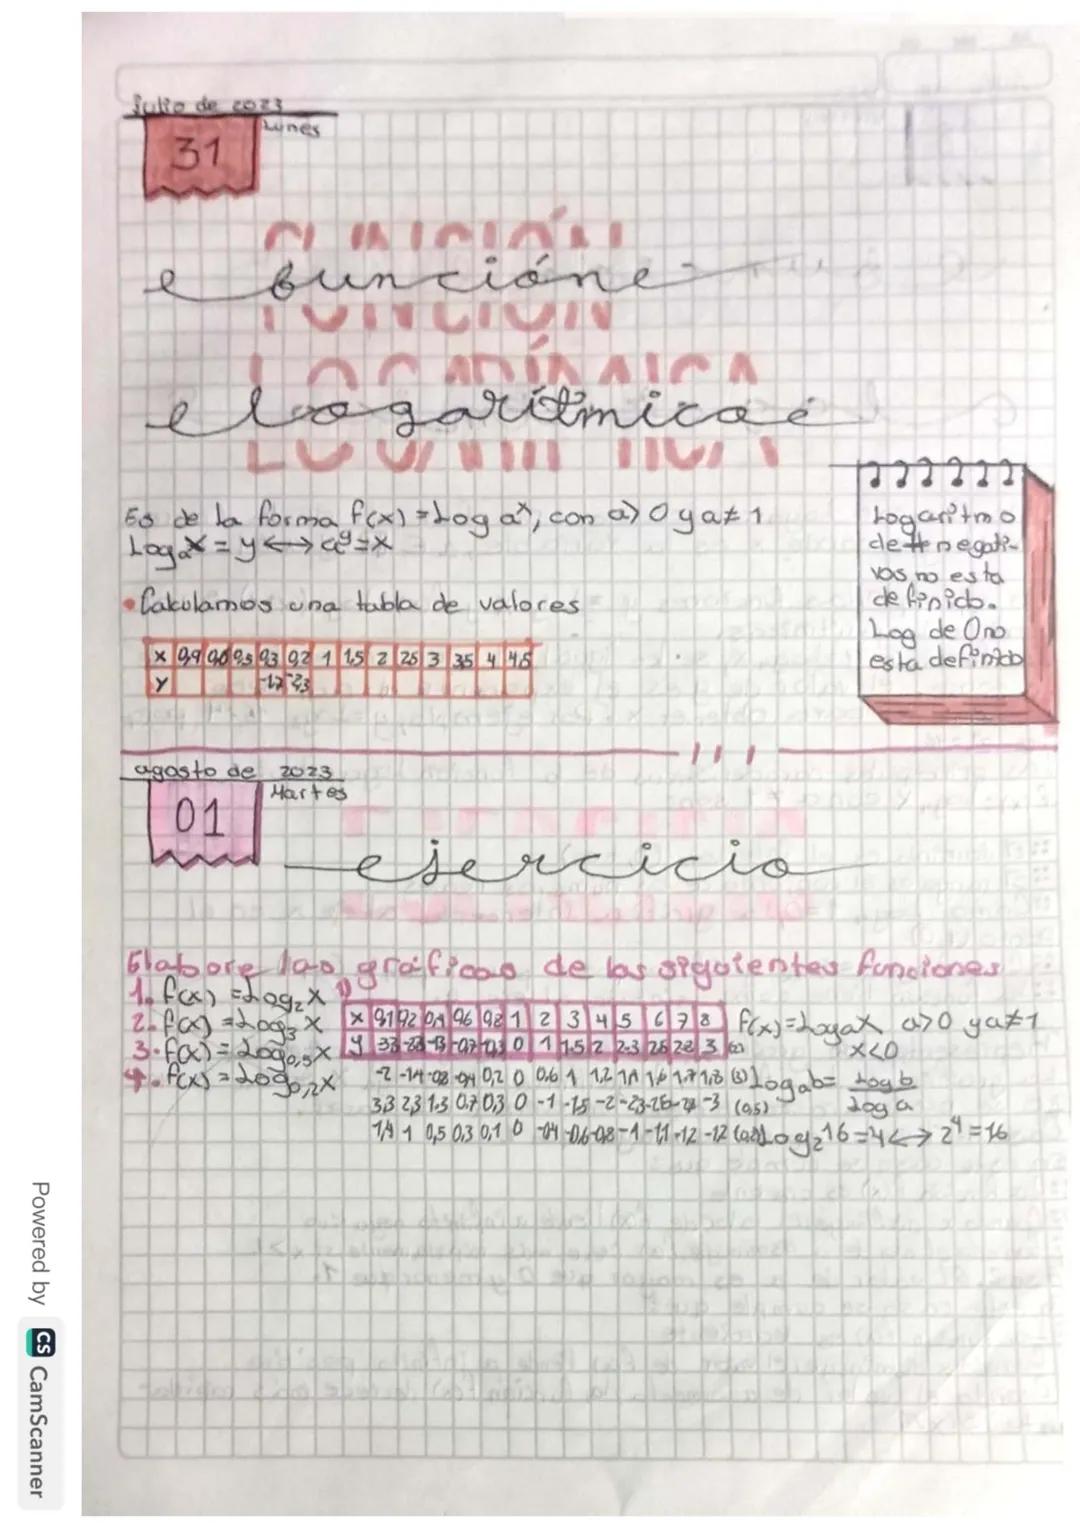 julio de 2023
Lunes
31
función
FUNCIÓN
logarítmica
LOGARÍTMICA
Es de la forma f(x) = Log aˣ, con a>0 y a≠1
Logₐx = y ↔ aʸ=x
• Calculamos una tabla de valores
x 0,9 0,3 0,2 1 1,5 2 2,5 3 3,5 4 4,5
Y -1,7 -2,3
Logaritmo
de # negati-
vos no esta
definido.
Log de 0 no
esta definido
agosto de 2023
Martes
01
ejercicio
Elabore las gráficas de las siguientes funciones
1. f(x) = Log₂x
2. f(x) = Log₃x
3. f(x) = Log₀,₅x
4. f(x) = Log₀,₂x
1)
x 0,1 0,2 0,4 0,6 0,8 1 2 3 4 5 6 7 8
y 0 1 1.5 2 2.3 3 (2)
-2 -1.4 -0.8 -0.4 0,2 0 0,6 1 1,2 1,6 1,7 1,8 (3)
3,3 2,3 1.3 0.7 0,3 0 -1 -1.5 -2 -2.3 -3 (0,5)
1,4 1 0,5 0.3 0,1 0 -0.4 -0.6 -0.8 -1 -1,1 -1.2 -1.2 (0,2)
f(x)=Logax a>0 y a≠1
x<0
Logₐb = Log b
Log a
Log₂16=4 ↔ 2⁴=16
Powered by CS CamScanner